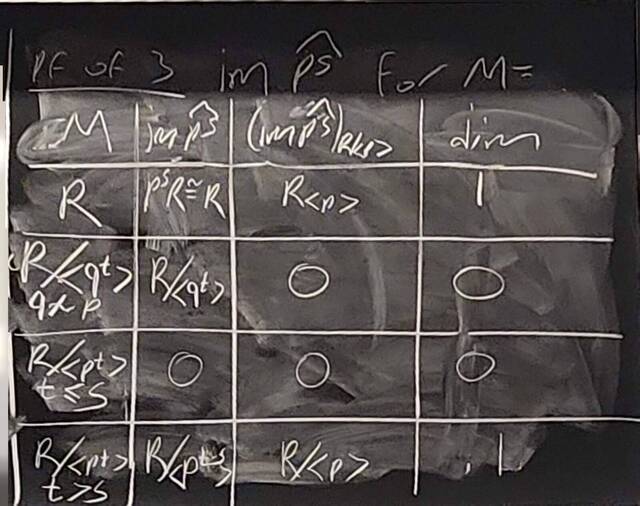 PF of 3 im p̂ˢ for M=
M im p̂ˢ (im p̂ˢ)_{R/<p>} dim
R pˢR≅R R<p> 1
R/<qᵗ> R/<qᵗ> 0 0
q≁p
R/<pᵗ> 0 0 0
t≤s
R/<pᵗ> R/<pᵗ⁻ˢ> R/<p> 1
t>s